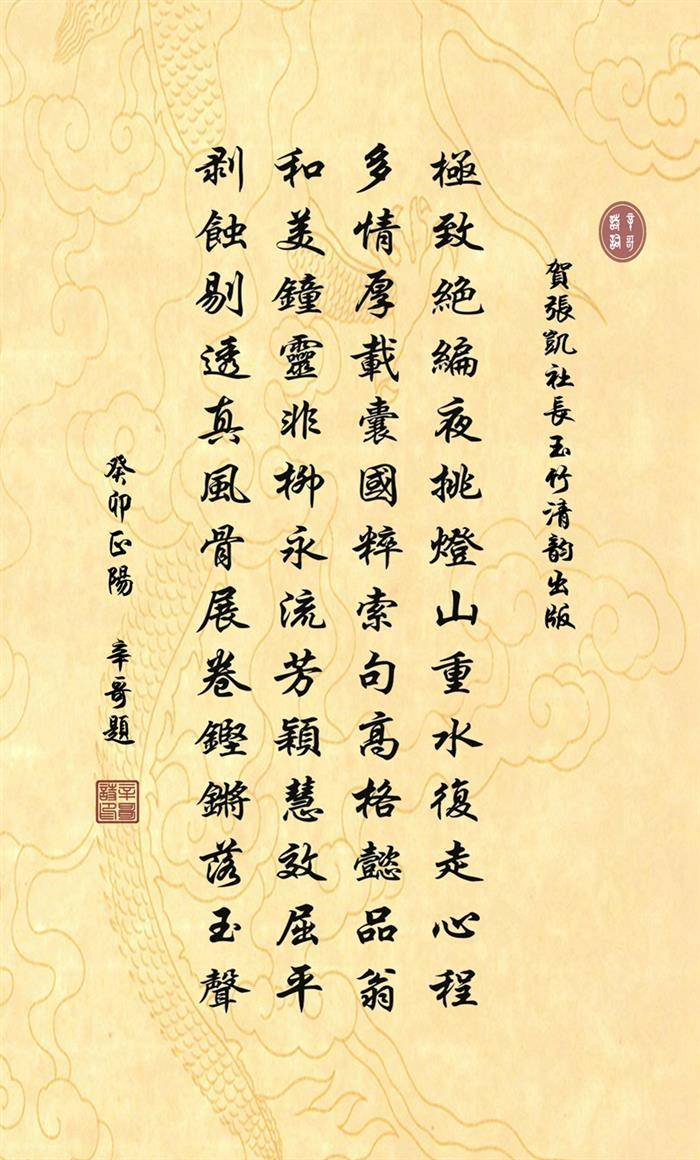 辛哥詩詞
賀張凱社長玉竹清韵出版
極致絶編夜挑燈山重水復走心程
多情厚載囊國粹索句高格懿品翁
和美鐘靈非柳永流芳穎慧效屈平
剥蝕剔透真風骨展卷鏗鏘落玉聲
癸卯正陽 辛哥題
辛哥詩印